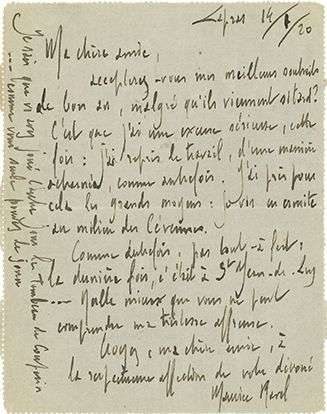 Lapras 14/1/20
Ma chère amie,
accepterez-vous mes meilleurs souhaits
de bon an, malgré qu'ils viennent si tard?
C'est que j'ai une excuse sérieuse, cette
fois : j'ai repris le travail, d'une manière
acharnée, comme autrefois. J'ai pris pour
cela les grands moyens : je vis en ermite
au milieu des Cévennes.
Comme autrefois; pas tout-à-fait:
la dernière fois, c'était à St Jean-de-Luz
... Quelle mieux que vous ne peut
comprendre ma tristesse affreuse.
Croyez, ma chère amie, à
la respectueuse affection de votre dévoué
Maurice Ravel
Je sais que vous jouer l'autre jour le Tombeau de Couperin
... comme vous seule pouvez le jouer